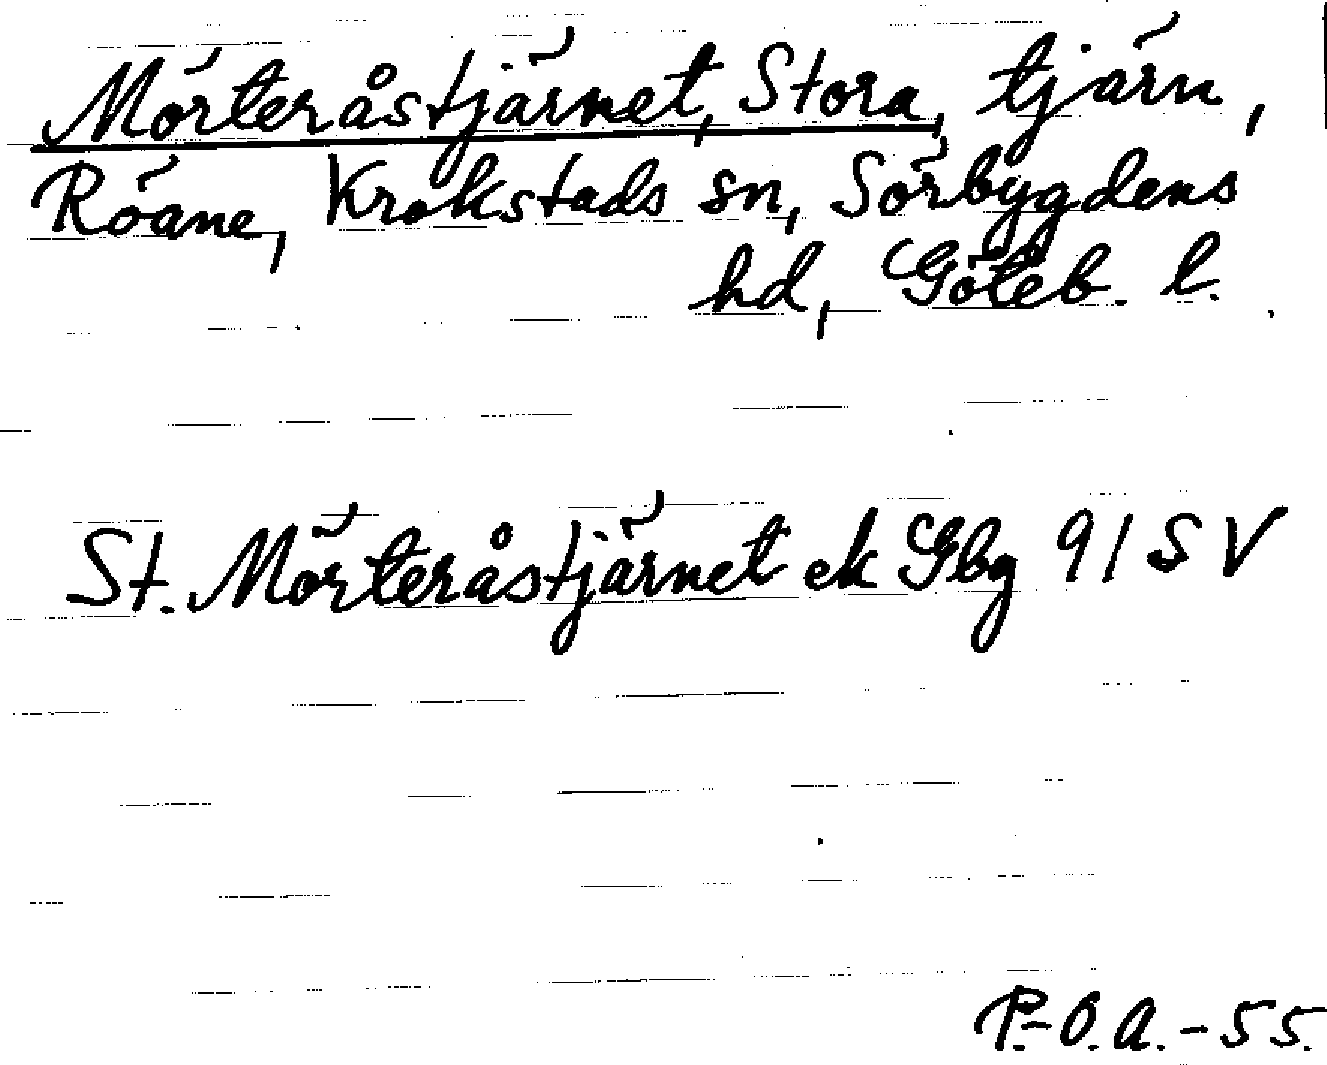 Mörteråstjärnet, Stora, tjärn,
Röane, Krokstads sn, Sörbygdens
hd, Göteb. l.
St. Mörteråstjärnet ek Gbg 91 S V
P.-O. A. - 55.